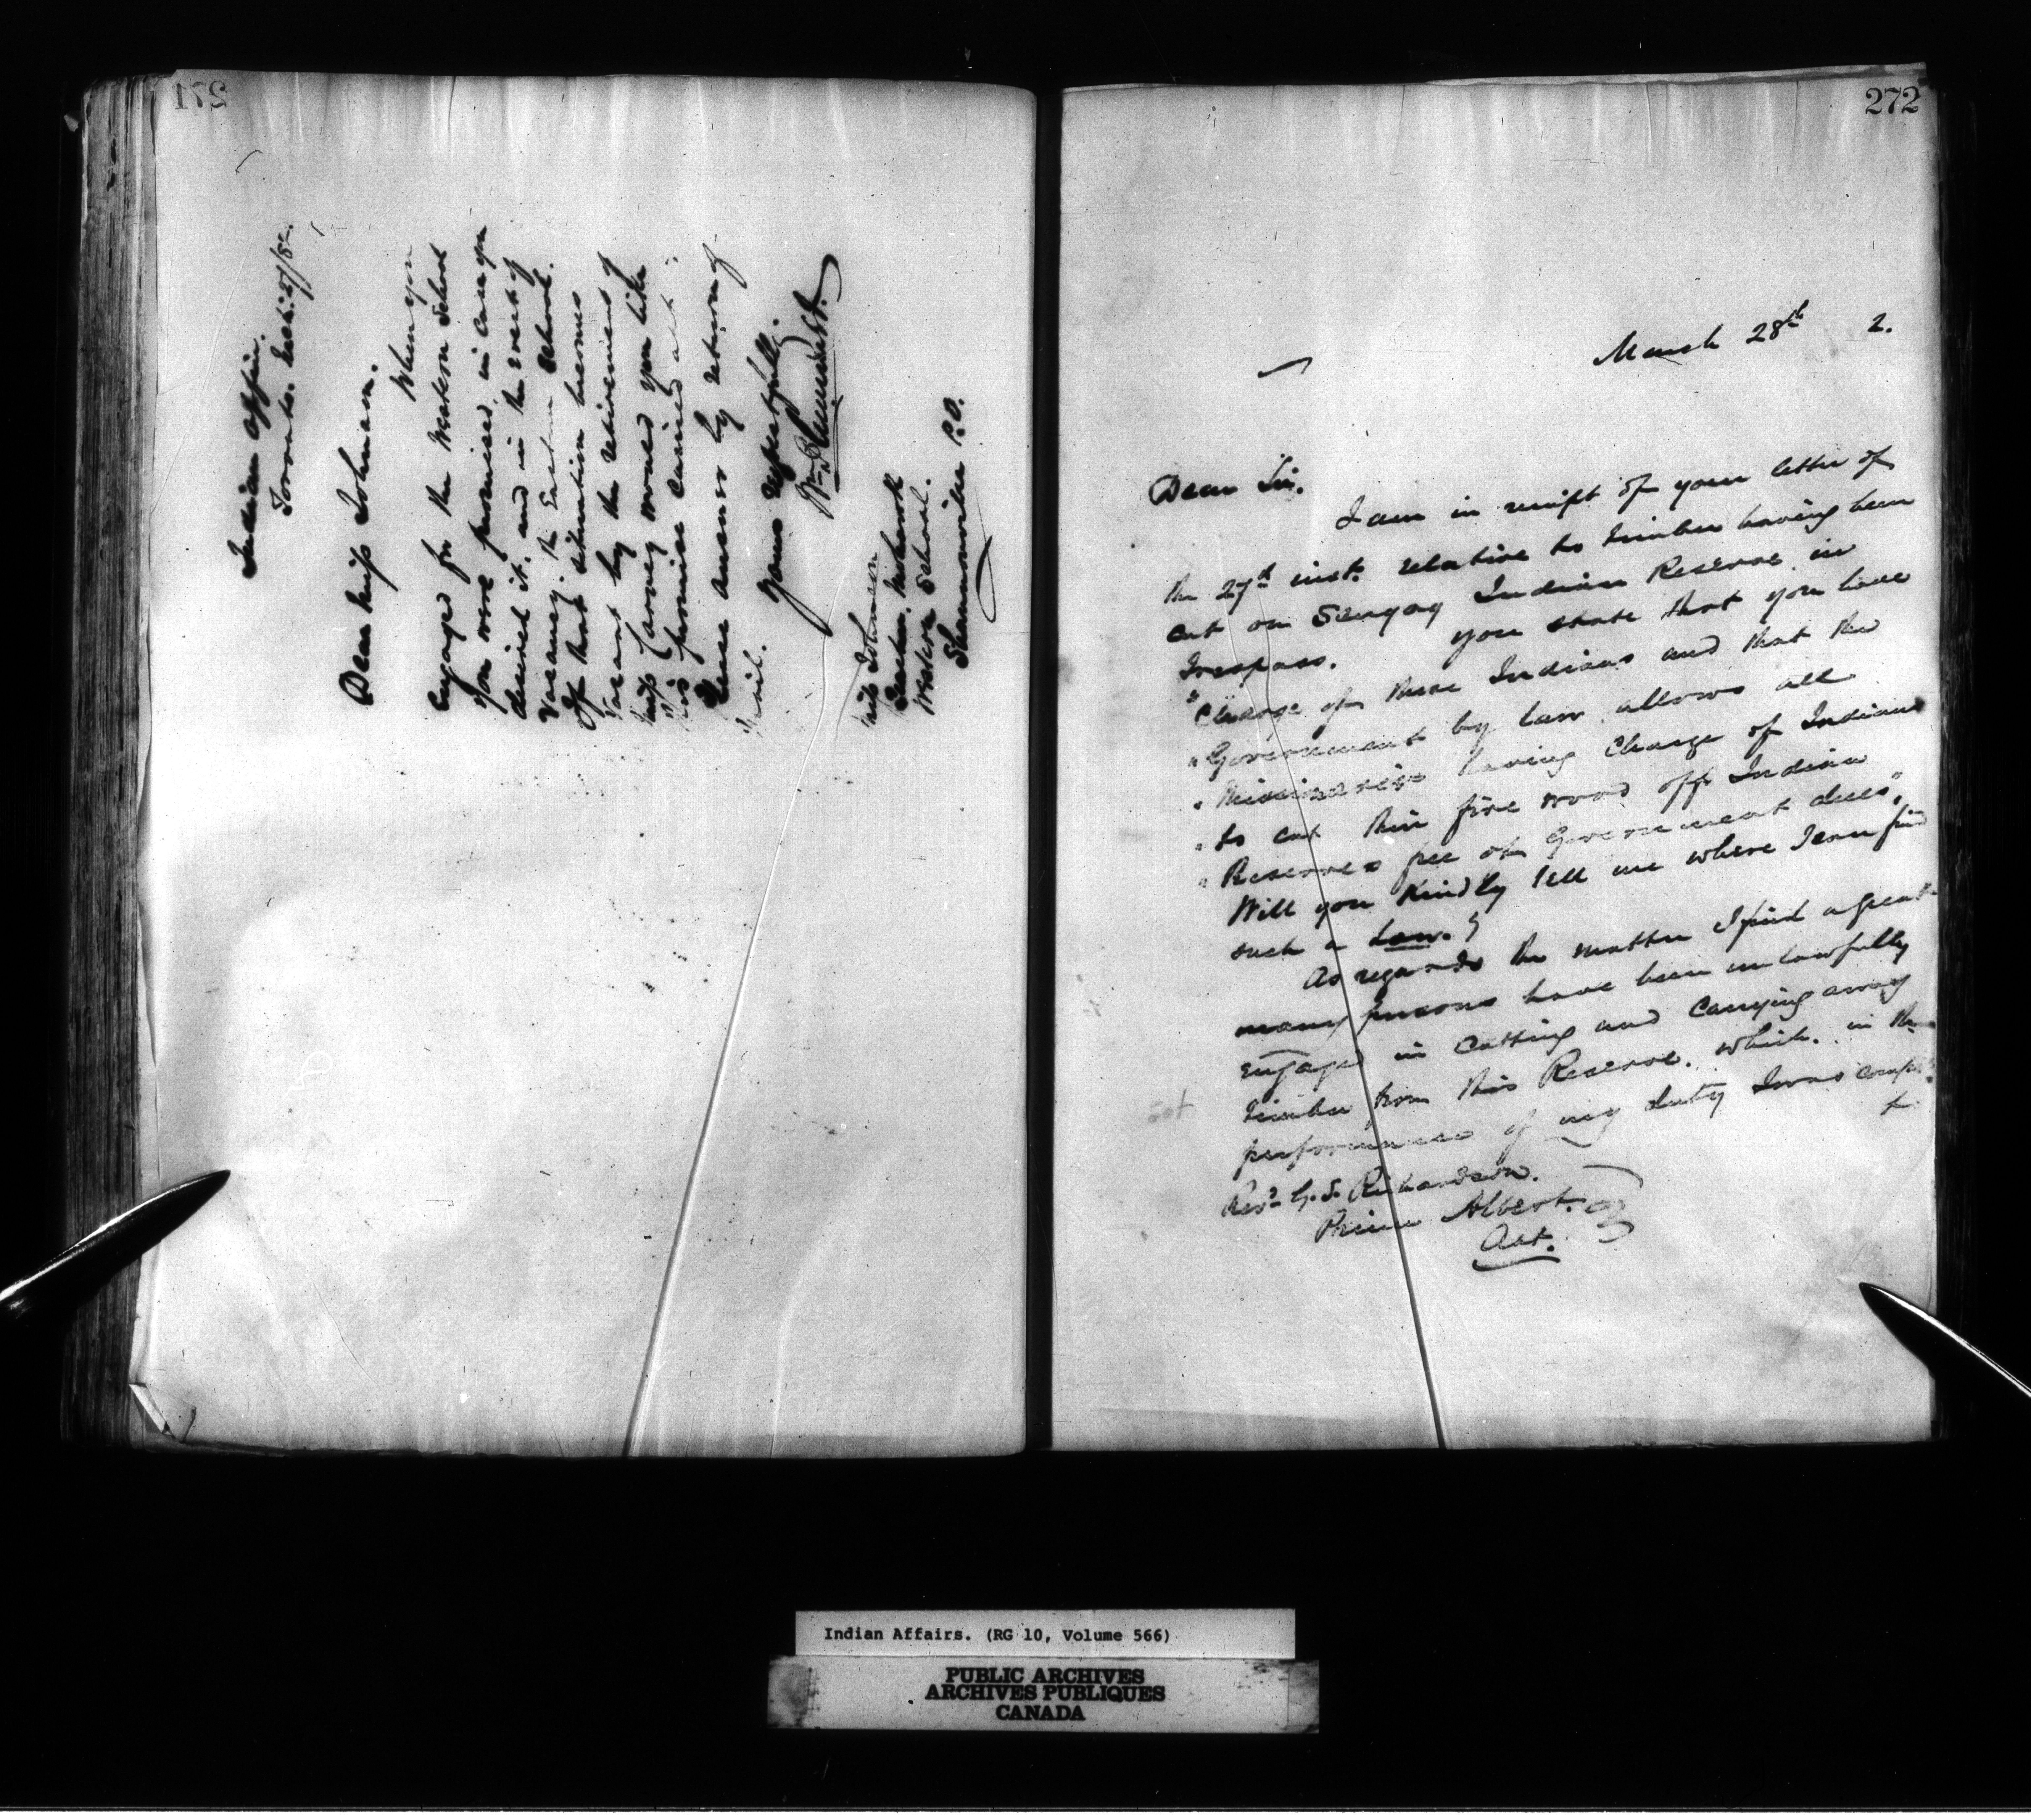 271
Indian Office.
Toronto. March 27/82.
Dear Miss Johnson.
When you
engaged for the Western School
you were promised, in case you
desired it, and in the event of
Vacancy, the Eastern School.
If that situation becomes
Vacant by the retirement of
Miss Carney would you like
this promise carried out?
Please answer by return of
Mail.
Yours respectfully.
Wm Plummer
Miss Johnson
Teacher. Mohawk
Western School.
Shannonville P.O.
272
March 28th 2.
Dear Sir.
I am in receipt of your letter of
the 27th inst. relative to Timber having been
cut on Sengog Indian Reserve in
Trespass. You state that you have
"Charge of these Indians and that the
"Government by law allows all
"Missionaries having Charge of Indians
"to cut their fire wood off Indian
"Reserves free of Government dues"
Will you Kindly tell me where I can find
such a Law.?
As regards the matter I find a great
many persons have been unlawfully
engaged in Cutting and Carrying away
timber from this Reserve. which. in the
performance of my duty I was
to
Revd G. S. Richardson.
Prince Albert.
Ont.
Indian Affairs. (RG 10, Volume 566)
PUBLIC ARCHIVES
ARCHIVES PUBLIQUES
CANADA